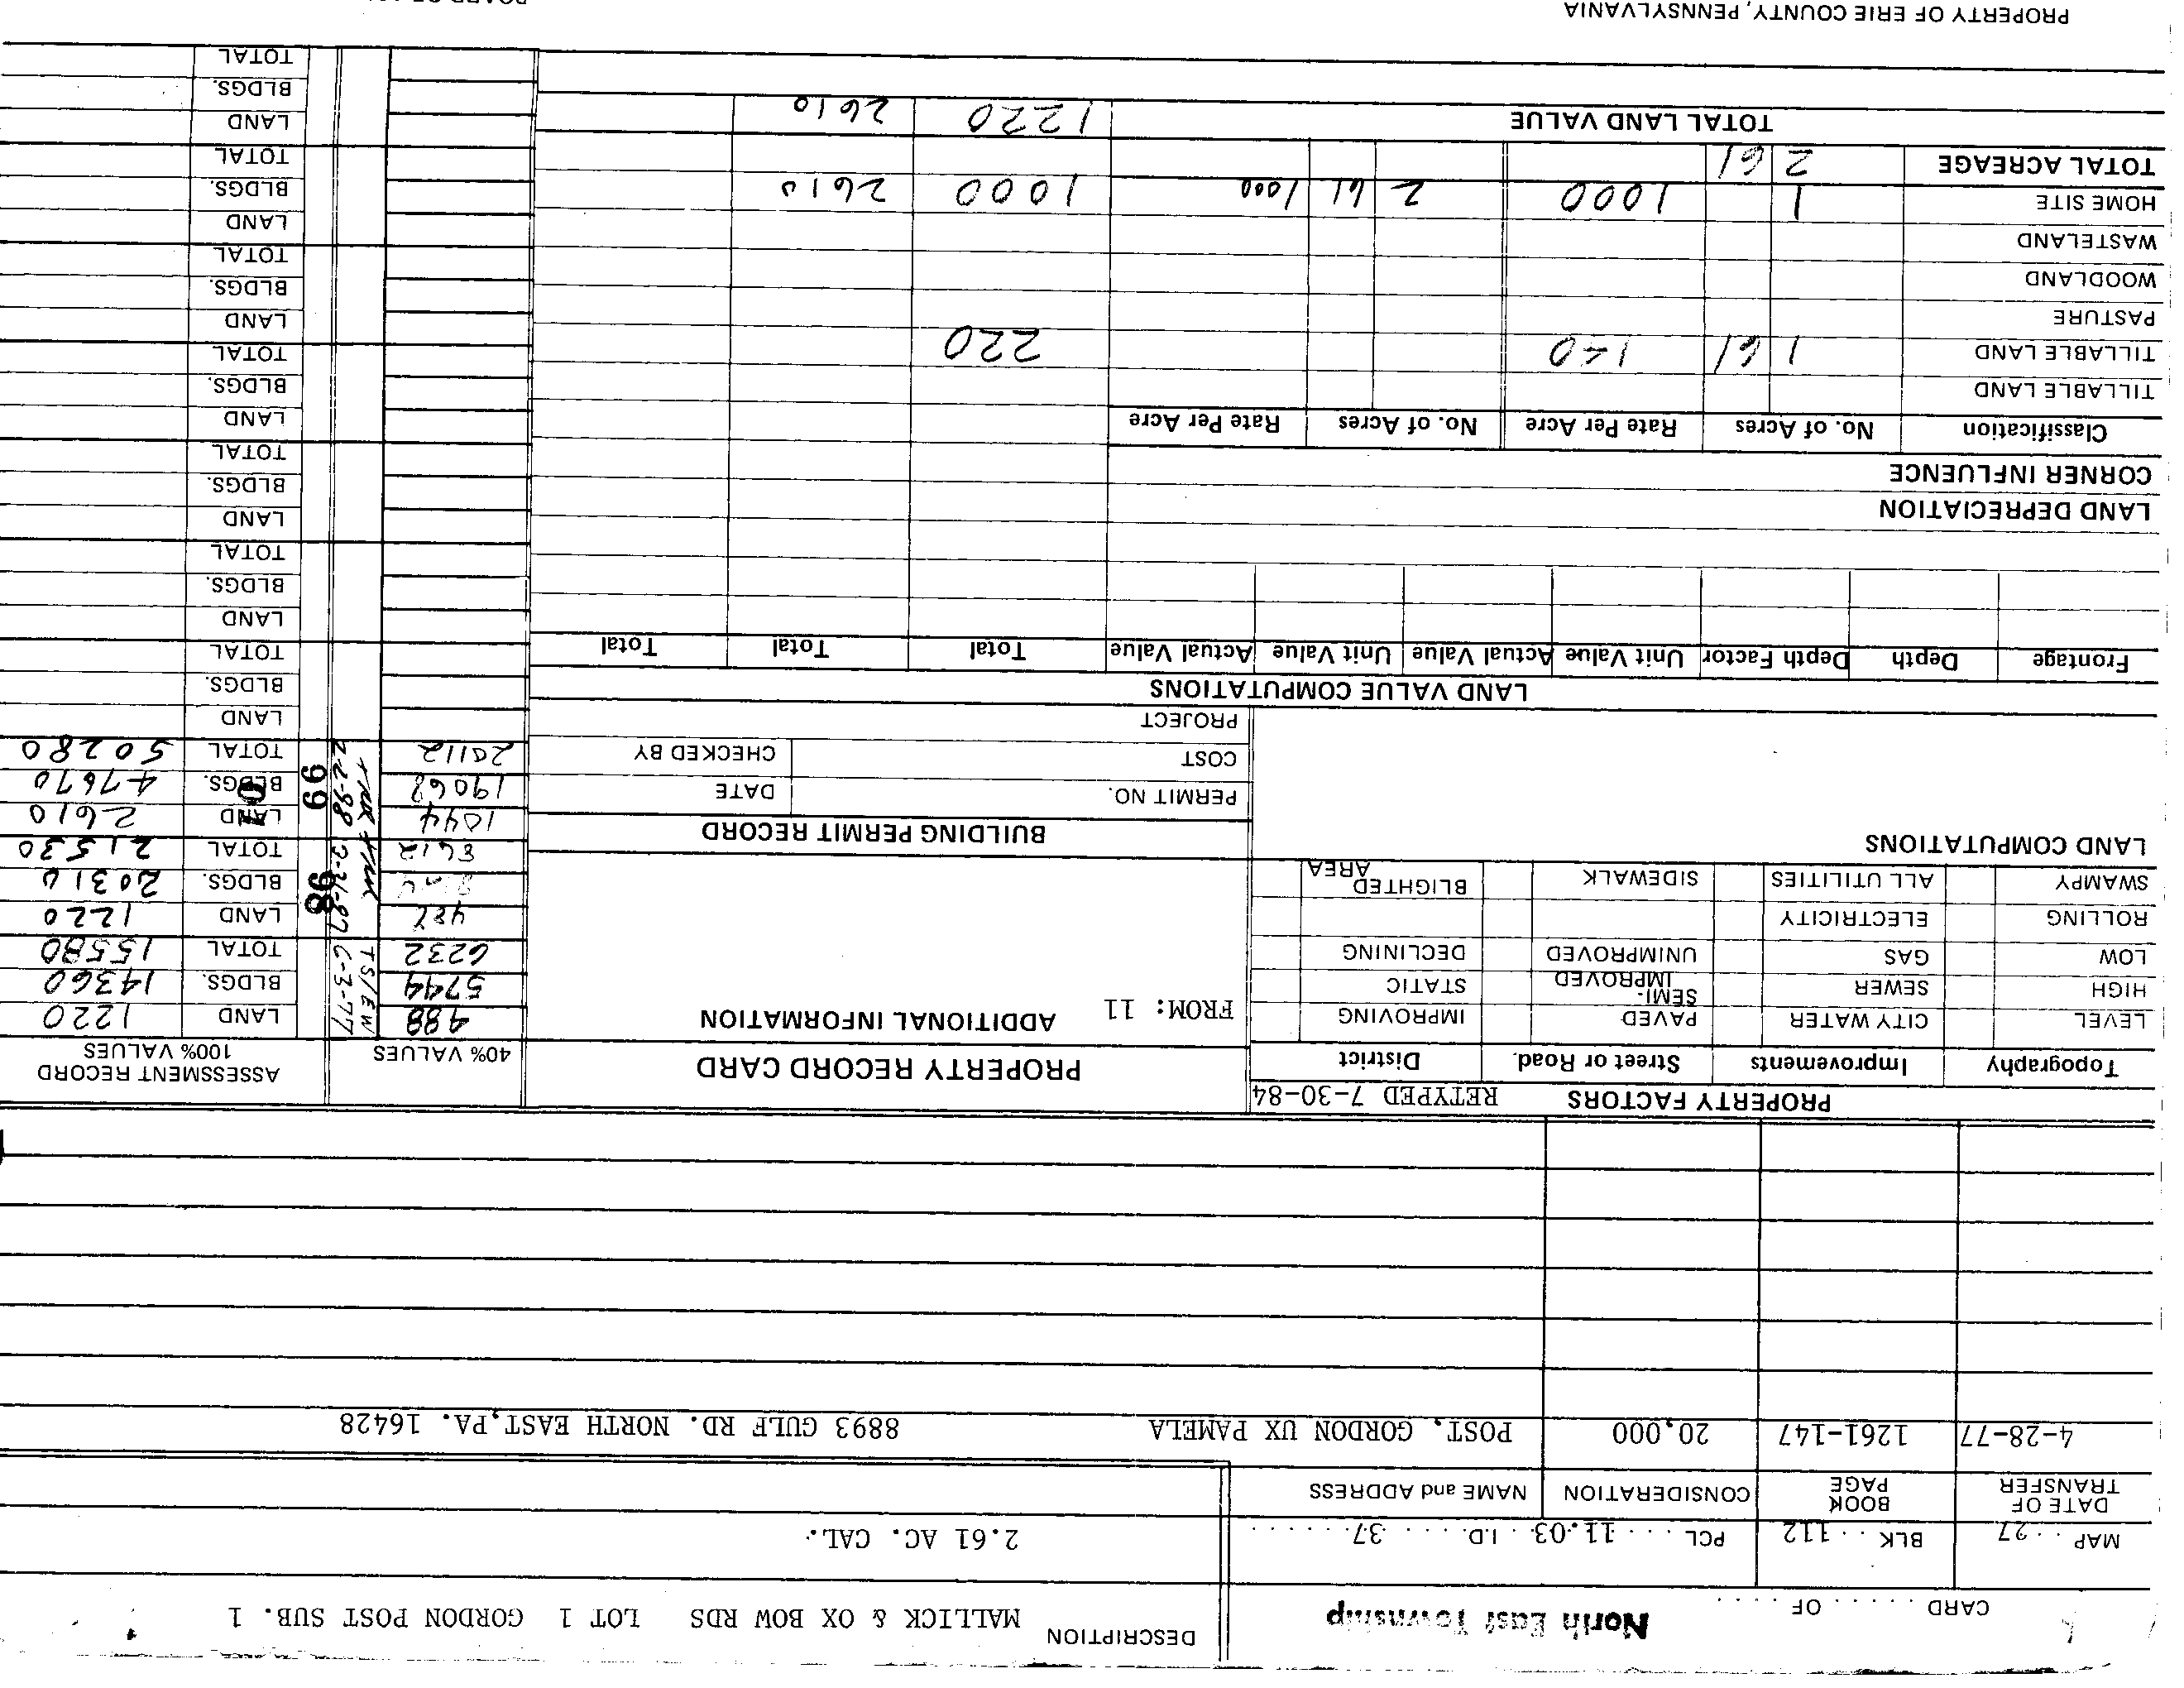 CARD . . . . . . OF . . . . . . North East Township DESCRIPTION MALLICK & OX BOW RDS LOT 1 GORDON POST SUB. 1
MAP . . 27 BLK . . . 112 PCL . . . . 11.03. I.D. . . . . 37. . . . . . . 2.61 AC. CAL.
DATE OF TRANSFER BOOK PAGE CONSIDERATION NAME and ADDRESS
4-28-77 1261-147 20,000 POST, GORDON UX PAMELA 8893 GULF RD. NORTH EAST,PA. 16428
PROPERTY FACTORS RETYPED 7-30-84
Topography Improvements Street or Road. District PROPERTY RECORD CARD 40% VALUES ASSESSMENT RECORD 100% VALUES
LEVEL CITY WATER PAVED IMPROVING FROM: 11 ADDITIONAL INFORMATION 488 TS/EW 6-3-77 LAND 1220
HIGH SEWER SEMI-IMPROVED STATIC 5744 BLDGS. 14360
LOW GAS UNIMPROVED DECLINING 6232 TOTAL 15580
ROLLING ELECTRICITY 488 98 LAND 1220
SWAMPY ALL UTILITIES SIDEWALK BLIGHTED AREA BLDGS. 20310
LAND COMPUTATIONS 8612 TOTAL 21530
BUILDING PERMIT RECORD 1044 2-2-98 99 LAND 2610
PERMIT NO. DATE 19068 BLDGS. 47670
COST CHECKED BY 20112 TOTAL 50280
PROJECT LAND
LAND VALUE COMPUTATIONS BLDGS.
Frontage Depth Depth Factor Unit Value Actual Value Unit Value Actual Value Total Total Total TOTAL
LAND
BLDGS.
TOTAL
LAND DEPRECIATION LAND
CORNER INFLUENCE BLDGS.
Classification No. of Acres Rate Per Acre No. of Acres Rate Per Acre TOTAL
LAND
TILLABLE LAND BLDGS.
TILLABLE LAND 1 61 140 220 TOTAL
PASTURE LAND
WOODLAND BLDGS.
WASTELAND TOTAL
LAND
HOME SITE 1 1000 2 61 1000 1000 2610 BLDGS.
TOTAL ACREAGE 2 61 TOTAL
TOTAL LAND VALUE 1220 2610 LAND
BLDGS.
TOTAL
PROPERTY OF ERIE COUNTY, PENNSYLVANIA